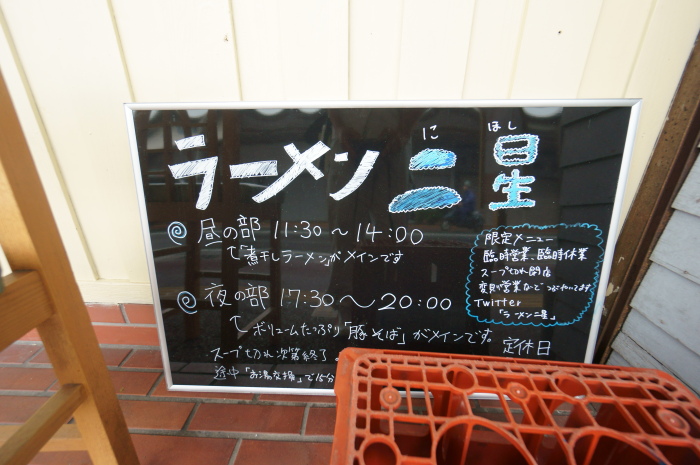 に ほし
ラーメン 二星
昼の部 11:30〜14:00
「煮干しラーメン」がメインです
夜の部 17:30〜20:00
ボリュームたっぷり「豚そば」がメインです。
・スープ切れ次第終了。
途中「お湯交換」で15分
限定メニュー
臨時営業、臨時休業
スープ切れ閉店
変則営業など つぶやいてます
Twitter
「ラーメン二星」
定休日